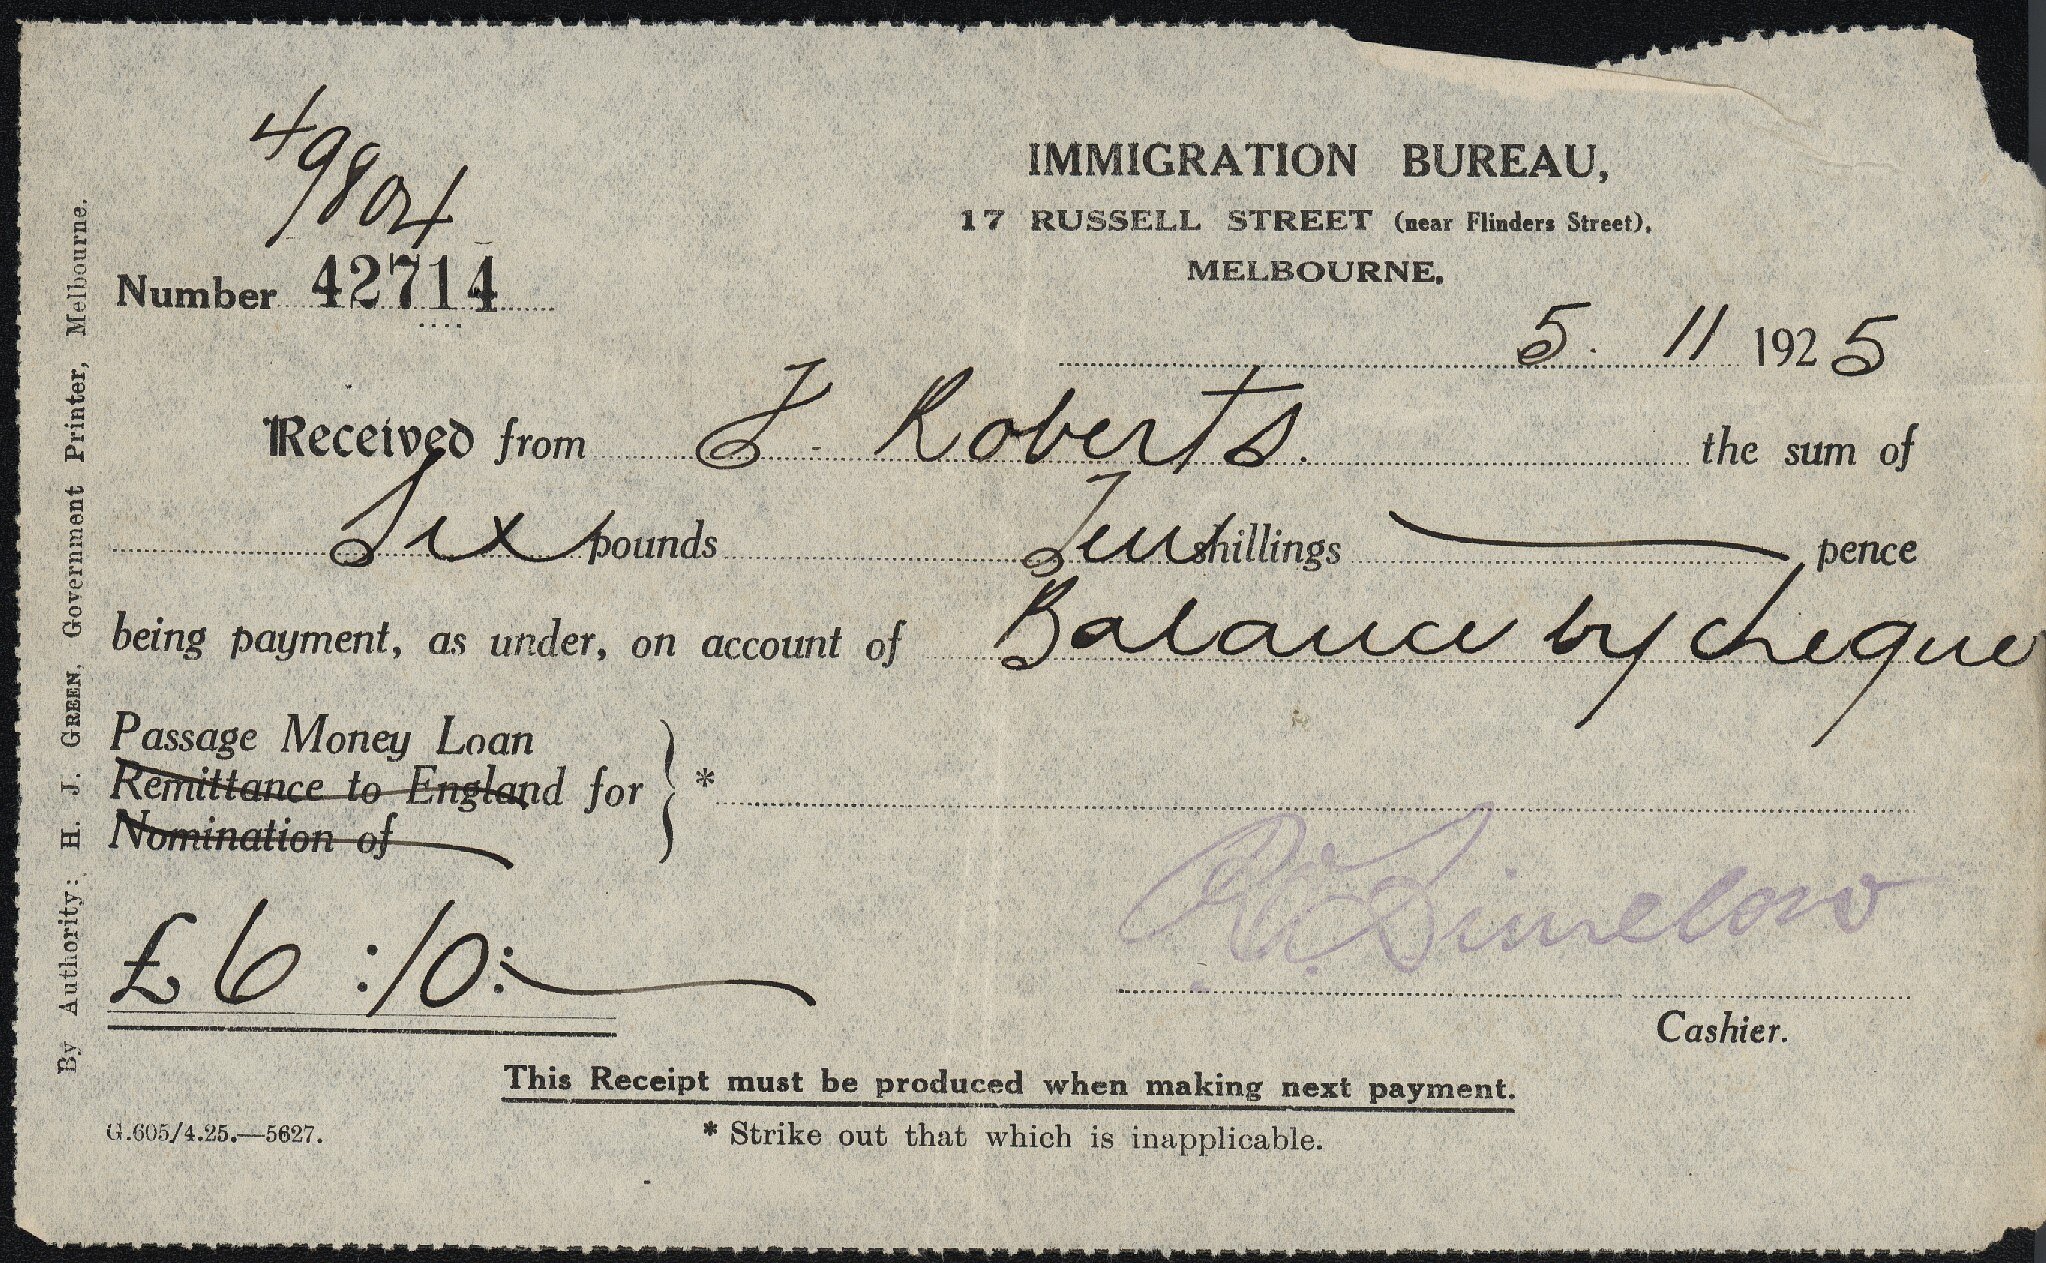 49804
IMMIGRATION BUREAU,
17 RUSSELL STREET (near Flinders Street),
MELBOURNE,
Number 42714
5. 11 1925
Received from J. Roberts. the sum of
Six pounds Ten shillings pence
being payment, as under, on account of Balance by cheque
Passage Money Loan
Remittance to England for
Nomination of
*
£6:10:
Cashier.
This Receipt must be produced when making next payment.
G.605/4.25.—5627.
* Strike out that which is inapplicable.
By Authority: H. J. GREEN, Government Printer, Melbourne.